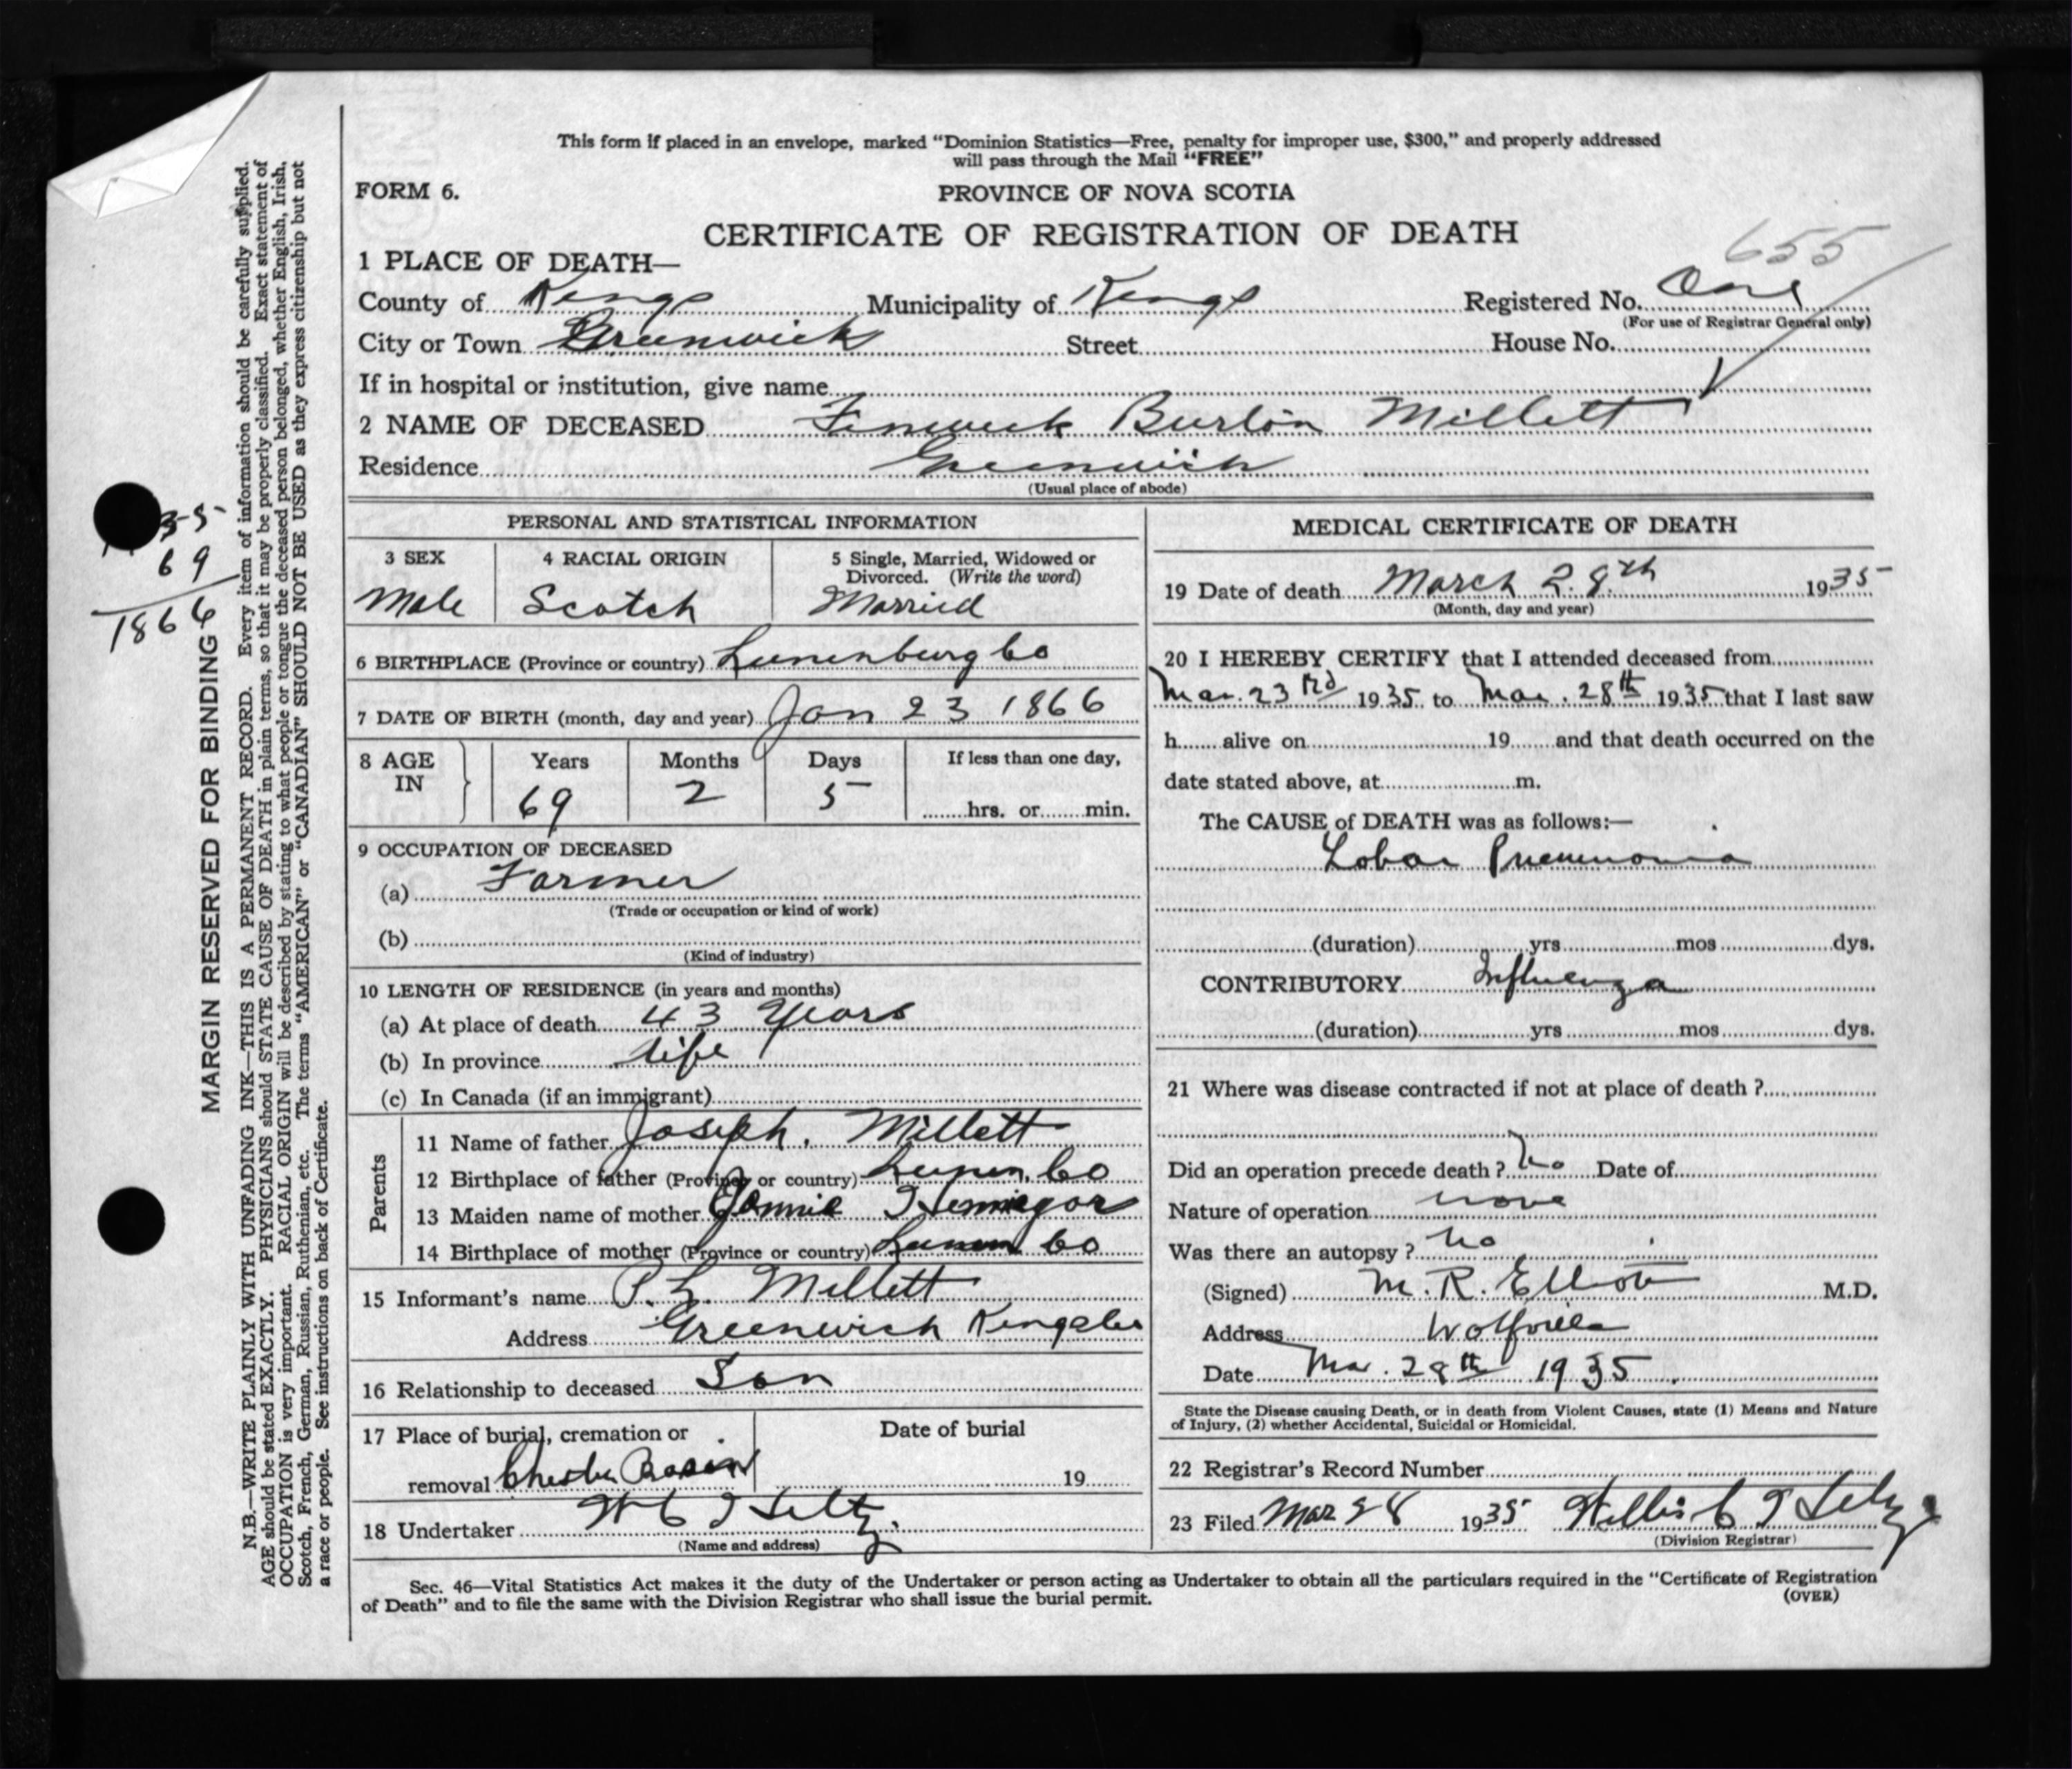 This form if placed in an envelope, marked "Dominion Statistics—Free, penalty for improper use, $300," and properly addressed
will pass through the Mail "FREE"
FORM 6.
PROVINCE OF NOVA SCOTIA
CERTIFICATE OF REGISTRATION OF DEATH
655
1 PLACE OF DEATH—
County of Kings Municipality of Kings Registered No. One
(For use of Registrar General only)
City or Town Greenwick Street House No.
If in hospital or institution, give name
2 NAME OF DECEASED Fenwick Burton Millett
Residence Greenwich
(Usual place of abode)
PERSONAL AND STATISTICAL INFORMATION
3 SEX 4 RACIAL ORIGIN 5 Single, Married, Widowed or
Divorced. (Write the word)
Male Scotch Married
6 BIRTHPLACE (Province or country) Lunenburg Co
7 DATE OF BIRTH (month, day and year) Jan 23 1866
8 AGE IN Years Months Days If less than one day,
69 2 5 hrs. or min.
9 OCCUPATION OF DECEASED
(a) Farmer
(Trade or occupation or kind of work)
(b)
(Kind of industry)
10 LENGTH OF RESIDENCE (in years and months)
(a) At place of death 43 Years
(b) In province life
(c) In Canada (if an immigrant)
Parents
11 Name of father Joseph Millett
12 Birthplace of father (Province or country) Lunen. Co
13 Maiden name of mother Jannie
14 Birthplace of mother (Province or country) Lunen Co
15 Informant's name P. L. Millett
Address Greenwich Kings Co
16 Relationship to deceased Son
17 Place of burial, cremation or Date of burial
removal Chester Basin 19
18 Undertaker W C Hiltz.
(Name and address)
MEDICAL CERTIFICATE OF DEATH
19 Date of death March 28th 1935
(Month, day and year)
20 I HEREBY CERTIFY that I attended deceased from
Mar. 23rd 1935 to Mar. 28th 1935 that I last saw
h alive on 19 and that death occurred on the
date stated above, at m.
The CAUSE of DEATH was as follows:—
Lobar Pneumonia
(duration) yrs mos dys.
CONTRIBUTORY Influenza
(duration) yrs mos dys.
21 Where was disease contracted if not at place of death ?
Did an operation precede death ? No Date of
Nature of operation none
Was there an autopsy ? No
(Signed) M. R. Elliott M.D.
Address Wolfville
Date Mar. 28th 1935
State the Disease causing Death, or in death from Violent Causes, state (1) Means and Nature
of Injury, (2) whether Accidental, Suicidal or Homicidal.
22 Registrar's Record Number
23 Filed Mar 28 1935 Willis C Hiltz
(Division Registrar)
Sec. 46—Vital Statistics Act makes it the duty of the Undertaker or person acting as Undertaker to obtain all the particulars required in the "Certificate of Registration
of Death" and to file the same with the Division Registrar who shall issue the burial permit.
(OVER)
35
69
1866
MARGIN RESERVED FOR BINDING
N.B.—WRITE PLAINLY WITH UNFADING INK—THIS IS A PERMANENT RECORD. Every item of information should be carefully supplied.
AGE should be stated EXACTLY. PHYSICIANS should STATE CAUSE OF DEATH in plain terms, so that it may be properly classified. Exact statement of
OCCUPATION is very important. RACIAL ORIGIN will be described by stating to what people or tongue the deceased person belonged, whether English, Irish,
Scotch, French, German, Russian, Ruthenian, etc. The terms "AMERICAN" or "CANADIAN" SHOULD NOT BE USED as they express citizenship but not
a race or people. See instructions on back of Certificate.